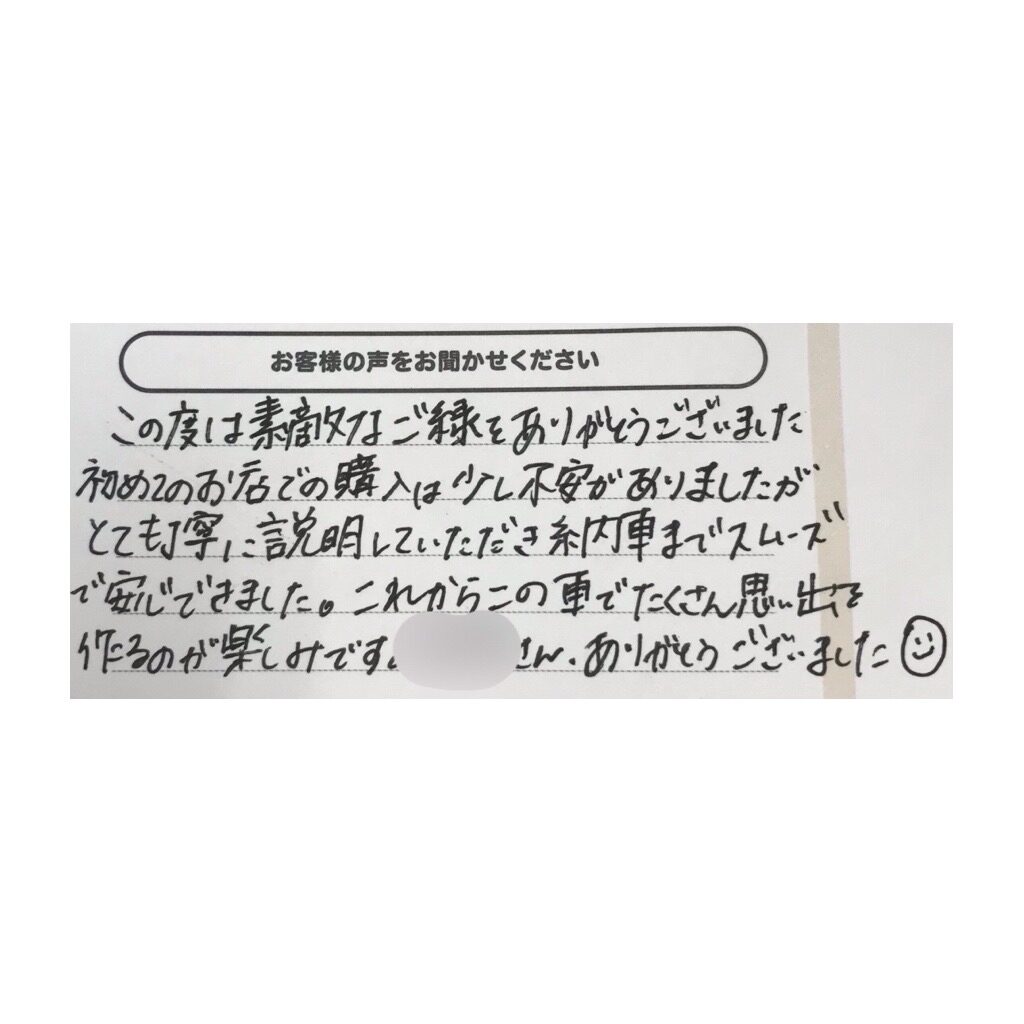 お客様の声をお聞かせください
この度は素敵なご縁をありがとうございました
初めてのお店での購入は少し不安がありましたが
とても丁寧に説明していただき納車までスムーズ
で安心できました。これからこの車でたくさん思い出を
作るのが楽しみです。さん、ありがとうございました